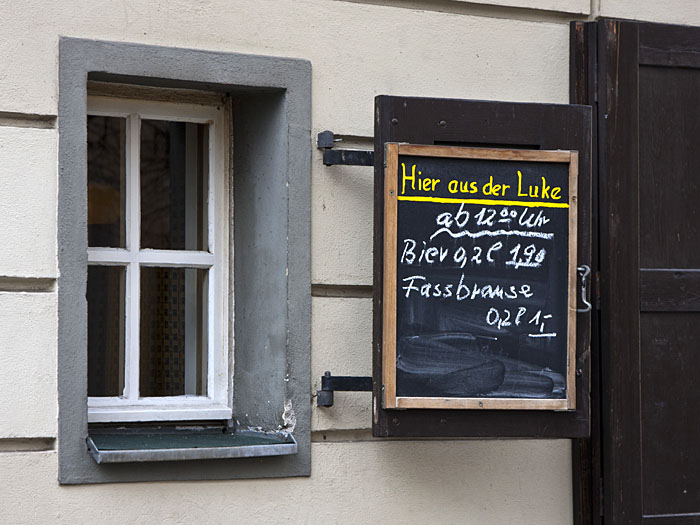 Hier aus der Luke
ab 12 00 Uhr
Bier 0,2l 1,90
Fassbrause
0,2l 1,-